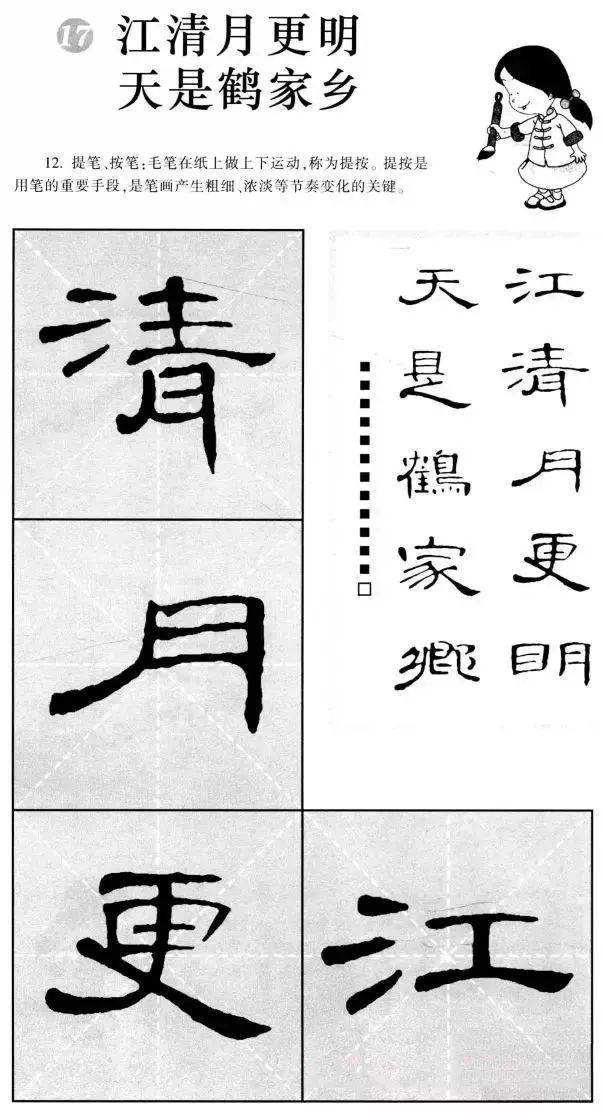 17 江清月更明
天是鹤家乡
12. 提笔、按笔：毛笔在纸上做上下运动，称为提按。提按是
用笔的重要手段，是笔画产生粗细、浓淡等节奏变化的关键。
江清月更明
天是鶴家鄉
江
清
月
更